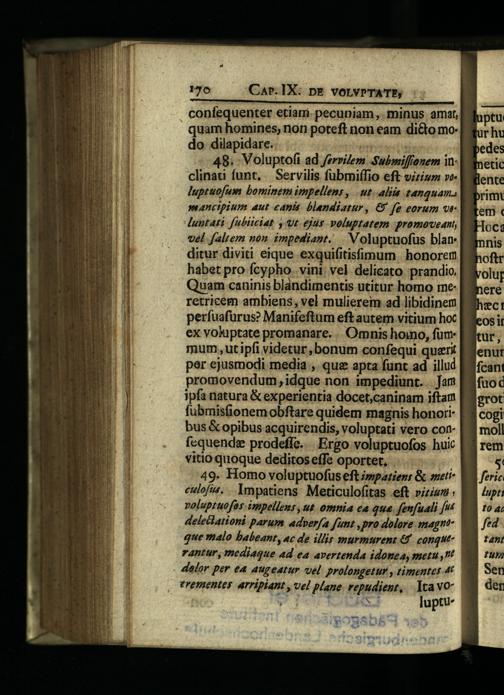 170 CAP. IX. DE VOLVPTATE,
consequenter etiam pecuniam, minus amat,
quam homines, non potest non eam dicto mo-
do dilapidare.
48. Voluptosi ad servilem Submissionem in-
clinati sunt. Servilis submissio est vitium vo-
luptuosum hominem impellens, ut aliis tanquam
mancipium aut canis blandiatur, & se eorum vo-
luntati subiiciat, ut ejus voluptatem promoveant,
vel saltem non impediant. Voluptuosus blan-
ditur diviti eique exquisitissimum honorem
habet pro scypho vini vel delicato prandio.
Quam caninis blandimentis utitur homo me-
retricem ambiens, vel mulierem ad libidinem
persuasurus? Manifestum est autem vitium hoc
ex voluptate promanare. Omnis homo, sum-
mum, ut ipsi videtur, bonum consequi quærit
per ejusmodi media, quæ apta sunt ad illud
promovendum, idque non impediunt. Jam
ipsa natura & experientia docet, caninam istam
submissionem obstare quidem magnis honori-
bus & opibus acquirendis, voluptati vero con-
sequendæ prodesse. Ergo voluptuosos huic
vitio quoque deditos esse oportet.
49. Homo voluptuosus est impatiens & meti-
culosus. Impatiens Meticulositas est vitium,
voluptuosos impellens, ut omnia ea quæ sensuali suæ
delectationi parum adversa sunt, pro dolore magno-
que malo habeant, ac de illis murmurent & conque-
rantur, mediaque ad ea avertenda idonea, metu, ne
dolor per ea augeatur vel prolongetur, timentes ac
trementes arripiant, vel plane repudient. Ita vo-
luptu-